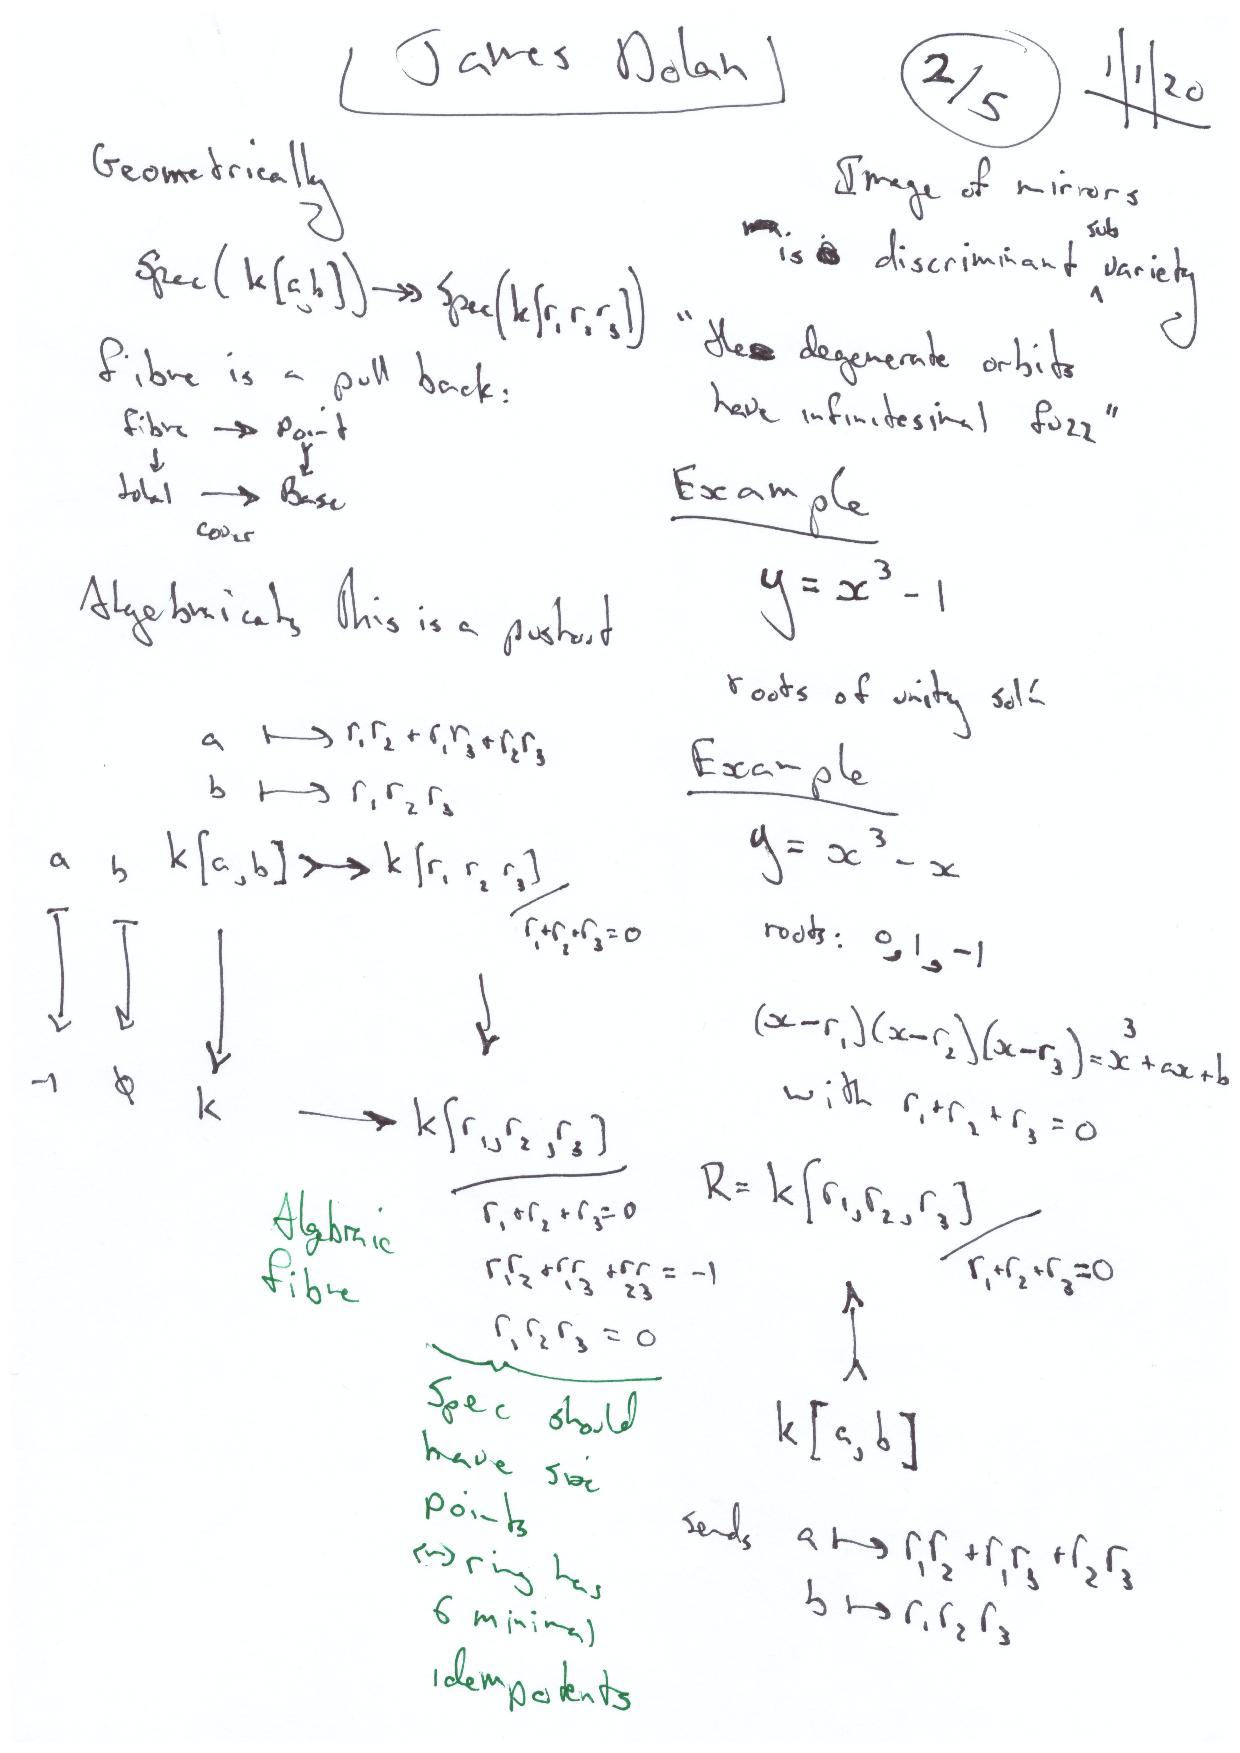 James Dolan
2/5
1/1/20
Geometrically
Spec(k[a,b]) ↠ Spec(k[r₁ r₂ r₃])
Fibre is a pull back:
fibre → Point
↓ ↓
total → Base
cover
Algebraically this is a pushout
a ↦ r₁r₂ + r₁r₃ + r₂r₃
b ↦ r₁r₂r₃
a b k[a,b] ↣ k[r₁ r₂ r₃] / r₁+r₂+r₃=0
-1 0 k → k[r₁,r₂,r₃]
r₁+r₂+r₃=0
r₁r₂+r₁r₃+r₂r₃=-1
r₁r₂r₃=0
Algebraic
fibre
Spec should
have six
points
⟨⇝⟩ ring has
6 minimal
idempotents
Image of mirrors
is discriminant sub variety
"the degenerate orbits
have infinitesimal fuzz"
Example
y = x³ - 1
roots of unity solⁿ
Example
y = x³ - x
roots: 0, 1, -1
(x-r₁)(x-r₂)(x-r₃) = x³ + ax + b
with r₁+r₂+r₃=0
R = k[r₁,r₂,r₃] / r₁+r₂+r₃=0
k[a,b]
sends a ↦ r₁r₂+r₁r₃+r₂r₃
b ↦ r₁r₂r₃